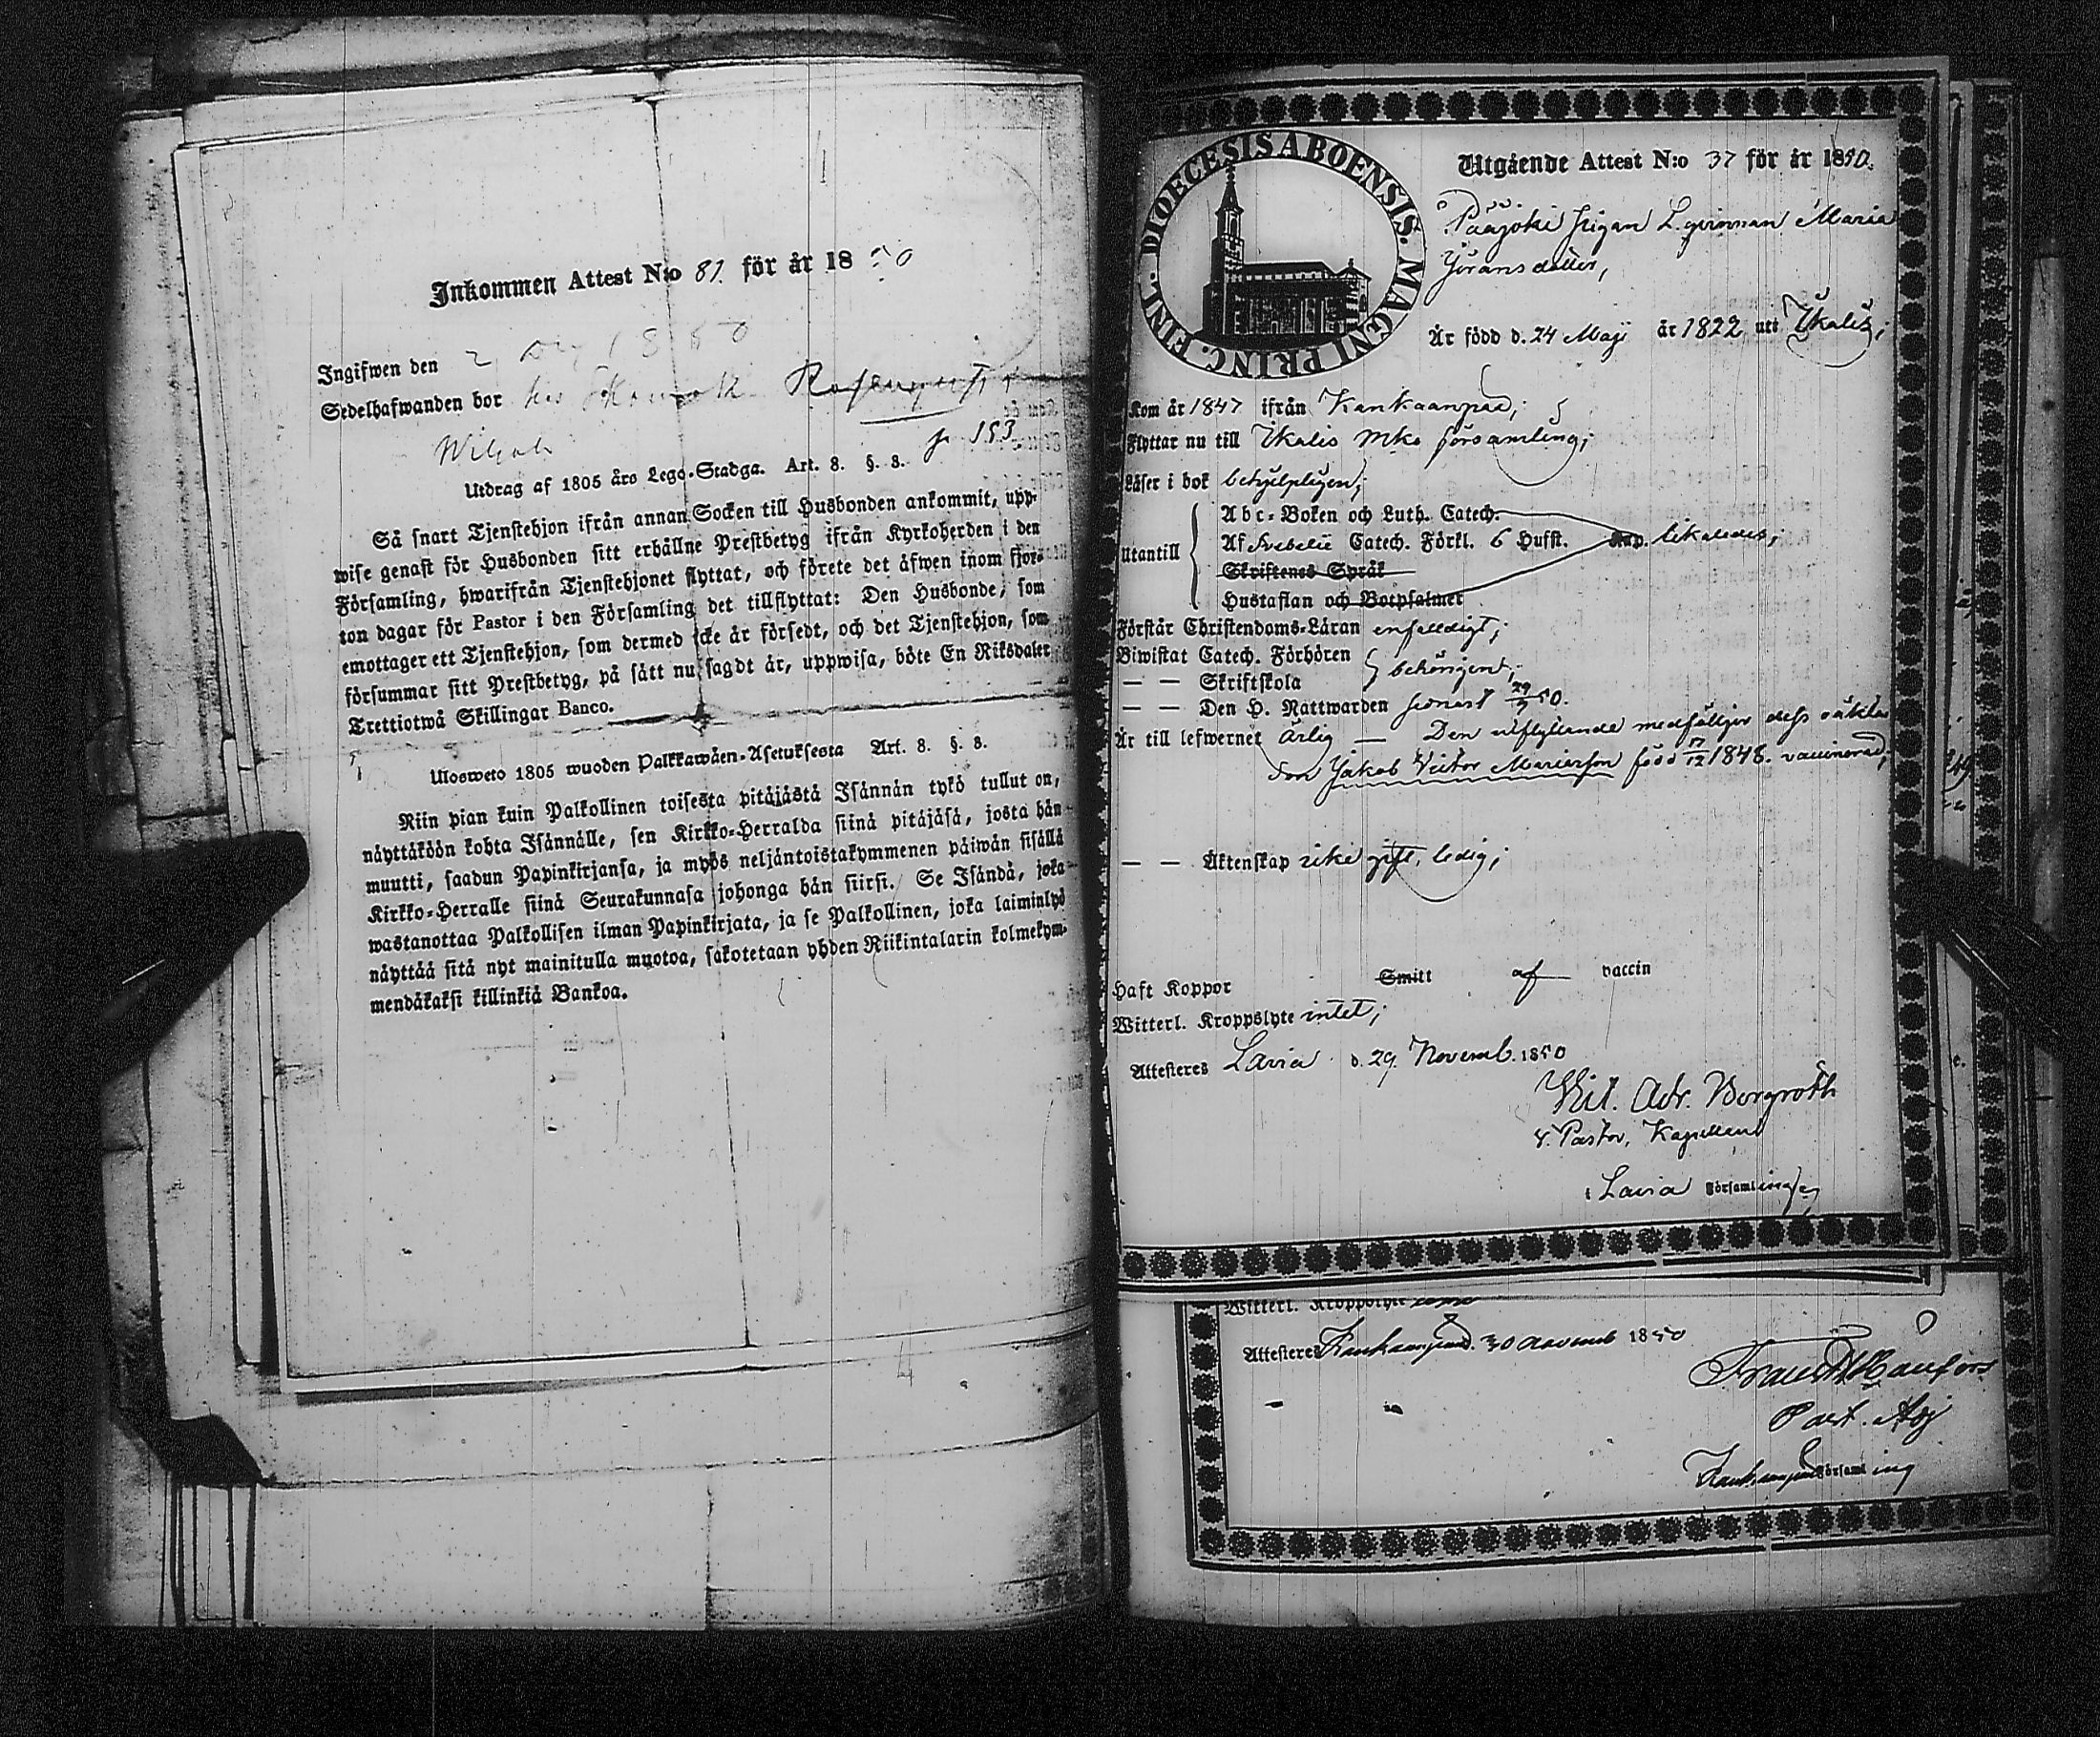 Inkommen Attest N:o 81. för år 1850
Ingifwen den 2 1850
Sedelhafwanden bor hos
p 153
Utdrag af 1805 års Lego-Stadga. Art. 8. §. 8.
Så snart Tjenstehjon ifrån annan Socken till Husbonden ankommit, upp-
wise genast för Husbonden sitt erhållne Prestbetyg ifrån Kyrkoherden i den
Församling, hwarifrån Tjenstehjonet flyttat, och förete det äfwen inom fjor-
ton dagar för Pastor i den Församling det tillflyttat: Den Husbonde, som
emottager ett Tjenstehjon, som dermed icke är försedt, och det Tjenstehjon, som
försummar sitt Prestbetyg, på sätt nu sagdt är, uppwisa, böte En Riksdaler
Trettiotwå Skillingar Banco.
Ulosweto 1805 wuoden Palkkawäen-Asetuksesta Art. 8. §. 8.
Niin pian kuin Palkollinen toisesta pitäjästä Isännän tykö tullut on,
näyttäköön kohta Isännälle, sen Kirkko-Herralda siinä pitäjäsä, josta hän
muutti, saadun Papinkirjansa, ja myös neljäntoistakymmenen päiwän sisällä
Kirkko-Herralle siinä Seurakunnasa johonga hän siirsi. Se Isändä, joka
wastanottaa Palkollisen ilman Papinkirjata, ja se Palkollinen, joka laiminlyö
näyttää sitä nyt mainitulla muotoa, sakotetaan yhden Riikintalarin kolmekym-
mendäkaksi killinkiä Bankoa.
DIOECESIS ABOENSIS. MAGNI PRINC. FINL.
Utgående Attest N:o 37 för år 1850.
Pääjoki Pigan L. qvinnan Maria
Göransdotter,
Är född d. 24 Maji år 1822 uti Ikalis;
Kom år 1847 ifrån Kankaanpää;
Flyttar nu till Ikalis mkо församling;
Läser i bok behjelpligen;
Utantill
Abc-Boken och Luth. Catech.
Af Svebelii Catech. Förkl. 6 Hufst. Kap. likaledes;
Skriftenes Språk
Hustaflan och Botpsalmer
Förstår Christendoms-Läran enfaldigt;
Biwistat Catech. Förhören
— — Skriftskola behörigen;
— — Den H. Nattwarden senast 29/9 50.
Är till lefwernet ärlig — Den utflyttande medföljer dess oäkta
son Jakob Victor Mariæson född 17/12 1848. vaccinerad;
— — Äktenskap icke gift, ledig;
Haft Koppor Smitt af vaccin
Witterl. Kroppslyte intet;
Attesteres Lavia d. 29. Novemb. 1850
Vit. Adr. Borgroth
v. Pastor, Kapellan
i Lavia Församling
Witterl. Kroppslyte
Attesteres Kankaanpää d. 30 Novemb 1850
Past. Adj
Kankaanpää Församling